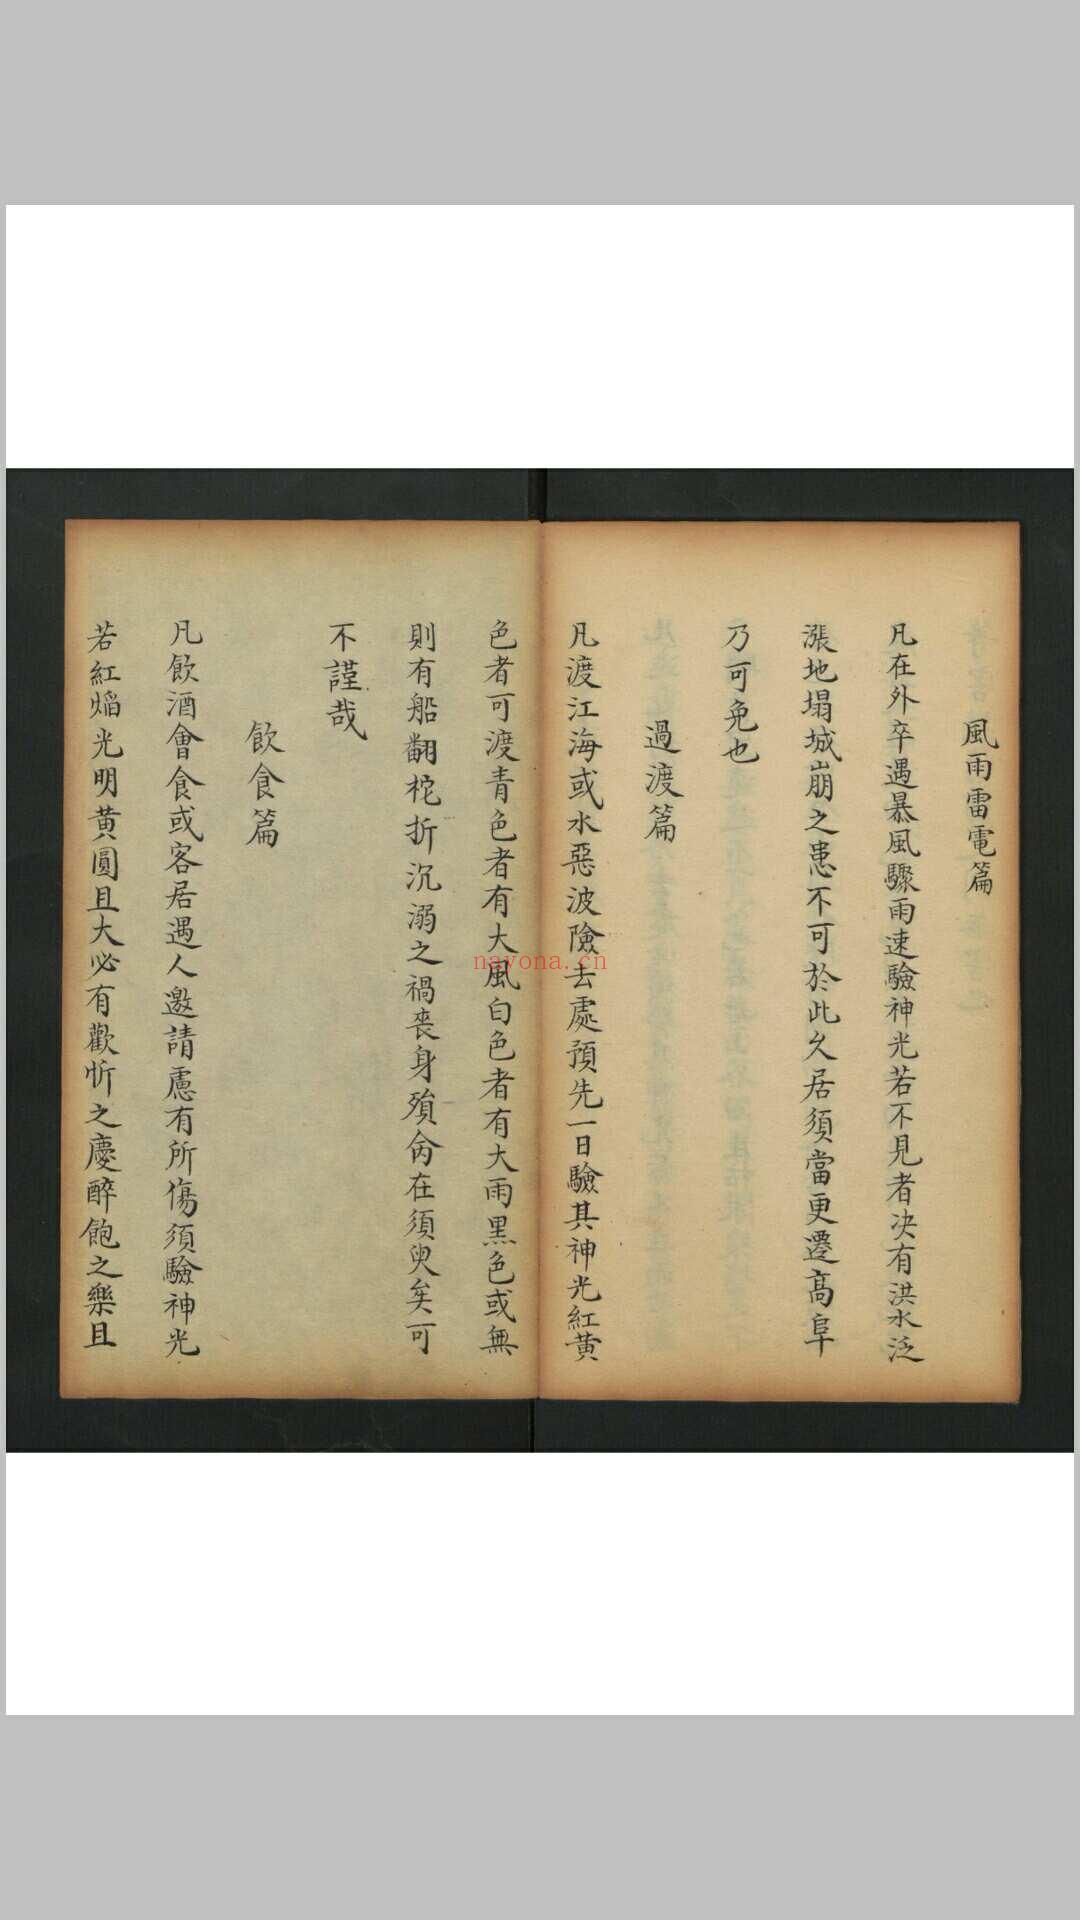 風雨雷電篇
凡在外卒遇暴風驟雨速驗神光若不見者决有洪水泛
漲地塌城崩之患不可於此久居須當更遷高阜
乃可免也
過渡篇
凡渡江海或水惡波險去處預先一日驗其神光紅黄
色者可渡青色者有大風白色者有大雨黑色或無
則有船翻柁折沉溺之禍喪身殞命在須臾矣可
不謹哉
飲食篇
凡飲酒會食或客居遇人邀請慮有所傷須驗神光
若紅焔光明黄圓且大必有歡忻之慶醉飽之樂且
nayona.cn